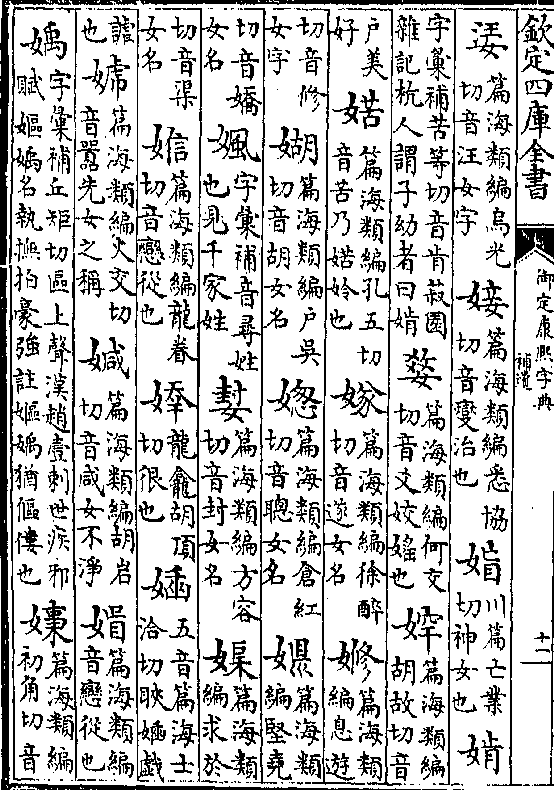 欽定四庫全書
御定康熙字典 補遺
十二
𡝩篇海類編烏光切音汪女字 㛍篇海類編悉協切音燮治也 媢川篇亡業切神女也 㛚
字彙補苦等切音肯菽園雜記杭人謂子幼者曰㛚 𡝤篇海類編何交切音爻姣媱也 婞篇海類編胡故切音
戶美好 㛐篇海類編孔五切音苦乃㛐姈也 嫁篇海類編徐醉切音遂女名 㛜篇海類編息遊
切音修女字 媩篇海類編戶吳切音胡女名 媤篇海類編倉紅切音聰女名 媀篇海類編堅堯
切音嬌女名 㛔字彙補音尋姓也見千家姓 㛃篇海類編方容切音封女名 㛥篇海類編求於
切音渠女名 㛛篇海類編龍眷切音戀從也 㛙龍龕胡項切很也 㛼五音篇海士洽切䀹㛼戲
謔也 㛿篇海類編火交切音嚣先女之稱 㛾篇海類編胡岩切音咸女不淨 娟篇海類編音戀從也
㜒字彙補丘矩切區上聲漢趙壹刺世疾邪賦嫗㜒名執撫拍豪強註嫗㜒猶傴僂也 㜑篇海類編初角切音